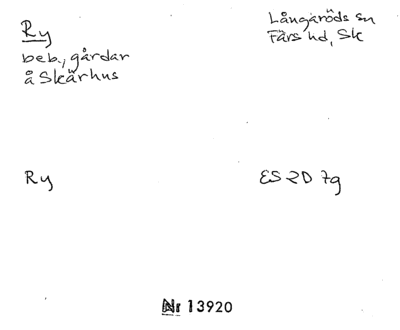 Ry
Långaröds sn
Färs hd, Sk
beb., gårdar
å Skärhus
Ry
ES 2D 7g
Nr 13920